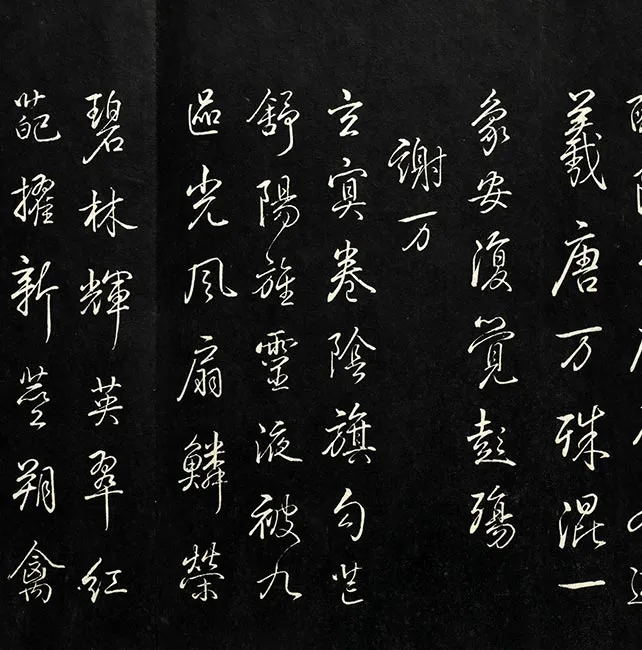 羲唐万殊混一
象安復覺彭殤
謝万
玄冥卷陰旗勾芒
舒陽旌靈液被九
區光風扇鱗榮
碧林輝英翠紅
葩擢新莖翔禽